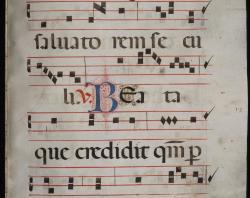 saluato rem se cu
li. V. BEa ta
que credidit qm̄ p